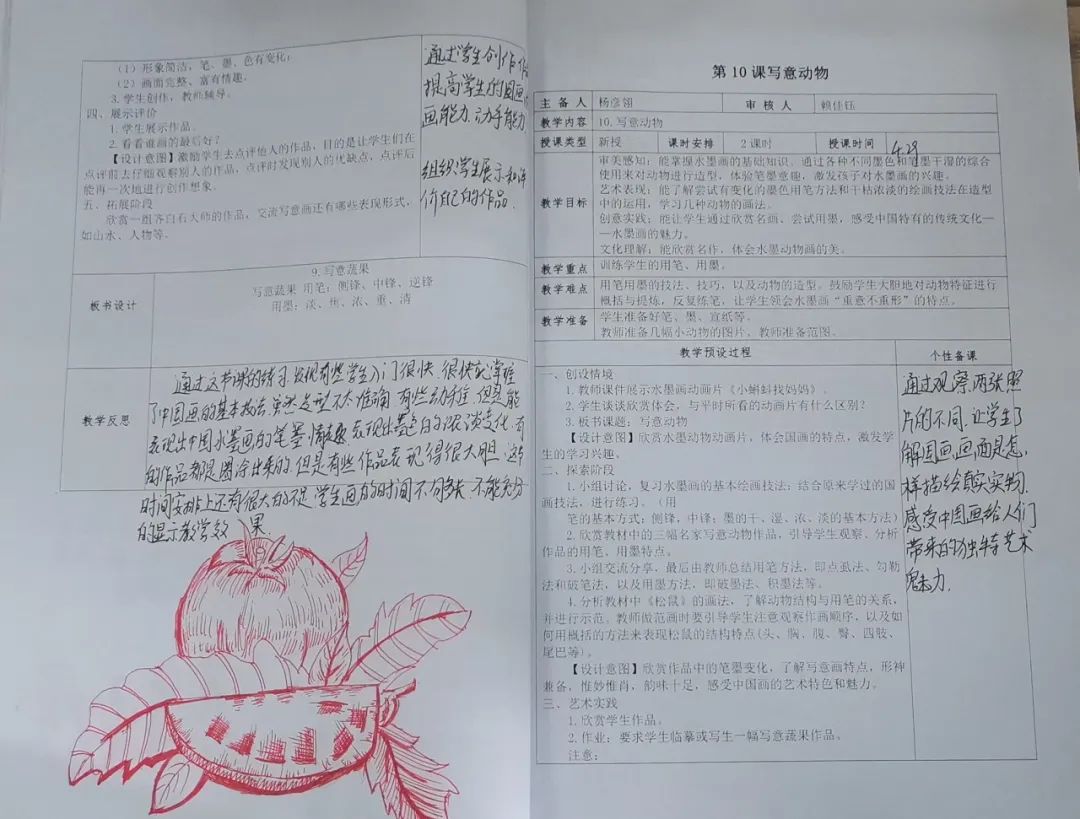 （1）形象简洁，笔、墨、色有变化；
（2）画面完整、富有情趣。
3.学生创作，教师辅导。
四、展示评价
1.学生展示作品。
2.看看谁画的最后好？
【设计意图】激励学生去点评他人的作品，目的是让学生们在
点评前去仔细观察别人的作品，点评时发现别人的优缺点，点评后
能再一次地进行创作想象。
五、拓展阶段
欣赏一组齐白石大师的作品，交流写意画还有哪些表现形式，
如山水、人物等。
通过学生创作
提高学生的国画
画能力.动手能力
组织学生展示和评
价自己的作品.
板书设计
9.写意蔬果
写意蔬果 用笔：侧锋、中锋、逆锋
用墨：淡、焦、浓、重、清
教学反思
通过这节课的练习.发现有些学生入门很快.很快就掌握
了中国画的基本技法.虽然造型不太准确.有些动手性.但是能
表现出中国水墨画的笔墨情趣.表现出墨色的浓淡变化.有
的作品都是圈涂出来的.但是有些作品表现得很大胆.这节
时间安排上还有很大的不足.学生画的时间不够.不能充分
的显示教学效果.
第10课写意动物
主备人 杨彦翎 审核人 赖佳钰
教学内容 10.写意动物
授课类型 新授 课时安排 2课时 授课时间 4.29
教学目标
审美感知：能掌握水墨画的基础知识。通过各种不同墨色和笔墨干湿的综合
使用来对动物进行造型，体验笔墨意趣，激发孩子对水墨画的兴趣。
艺术表现：能了解尝试有变化的墨色用笔方法和干枯浓淡的绘画技法在造型
中的运用，学习几种动物的画法。
创意实践：能让学生通过欣赏名画、尝试用墨，感受中国特有的传统文化—
—水墨画的魅力。
文化理解：能欣赏名作，体会水墨动物画的美。
教学重点 训练学生的用笔、用墨。
教学难点 用笔用墨的技法、技巧，以及动物的造型。鼓励学生大胆地对动物特征进行
概括与提炼，反复练笔，让学生领会水墨画“重意不重形”的特点。
教学准备 学生准备好笔、墨、宣纸等。
教师准备几幅小动物的图片、教师准备范图。
教学预设过程 个性备课
一、创设情境
1.教师课件展示水墨画动画片《小蝌蚪找妈妈》。
2.学生谈谈欣赏体会，与平时所看的动画片有什么区别？
3.板书课题：写意动物
【设计意图】欣赏水墨动物动画片，体会国画的特点，激发学
生的学习兴趣。
二、探索阶段
1.小组讨论，复习水墨画的基本绘画技法；结合原来学过的国
画技法，进行练习。（用
笔的基本方式：侧锋，中锋；墨的干、湿、浓、淡的基本方法）
2.欣赏教材中的三幅名家写意动物作品，引导学生观察、分析
作品的用笔、用墨特点。
3.小组交流分享，最后由教师总结用笔方法，即点虱法、勾勒
法和破笔法，以及用墨方法，即破墨法、积墨法等。
4.分析教材中《松鼠》的画法，了解动物结构与用笔的关系，
并进行示范。教师做范画时要引导学生注意观察作画顺序，以及如
何用概括的方法来表现松鼠的结构特点（头、胸、腹、臀、四肢、
尾巴等）。
【设计意图】欣赏作品中的笔墨变化，了解写意画特点，形神
兼备，惟妙惟肖，韵味十足，感受中国画的艺术特色和魅力。
三、艺术实践
1.欣赏学生作品。
2.作业：要求学生临摹或写生一幅写意蔬果作品。
注意：
通过观察.两张照
片的不同.让学生了
解国画.画面是怎
样描绘真实实物.
感受中国画给人们
带来的独特艺术
魅力.